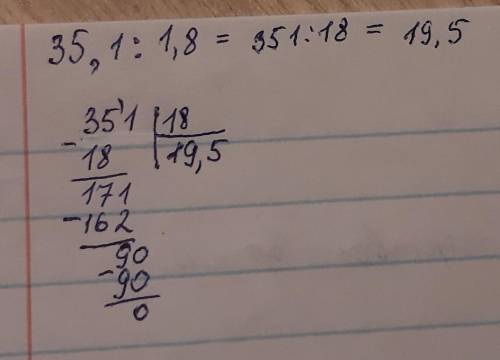 35,1 : 1,8 = 351 : 18 = 19,5
35'1 | 18
- 18 | 19,5
171
- 162
90
- 90
0